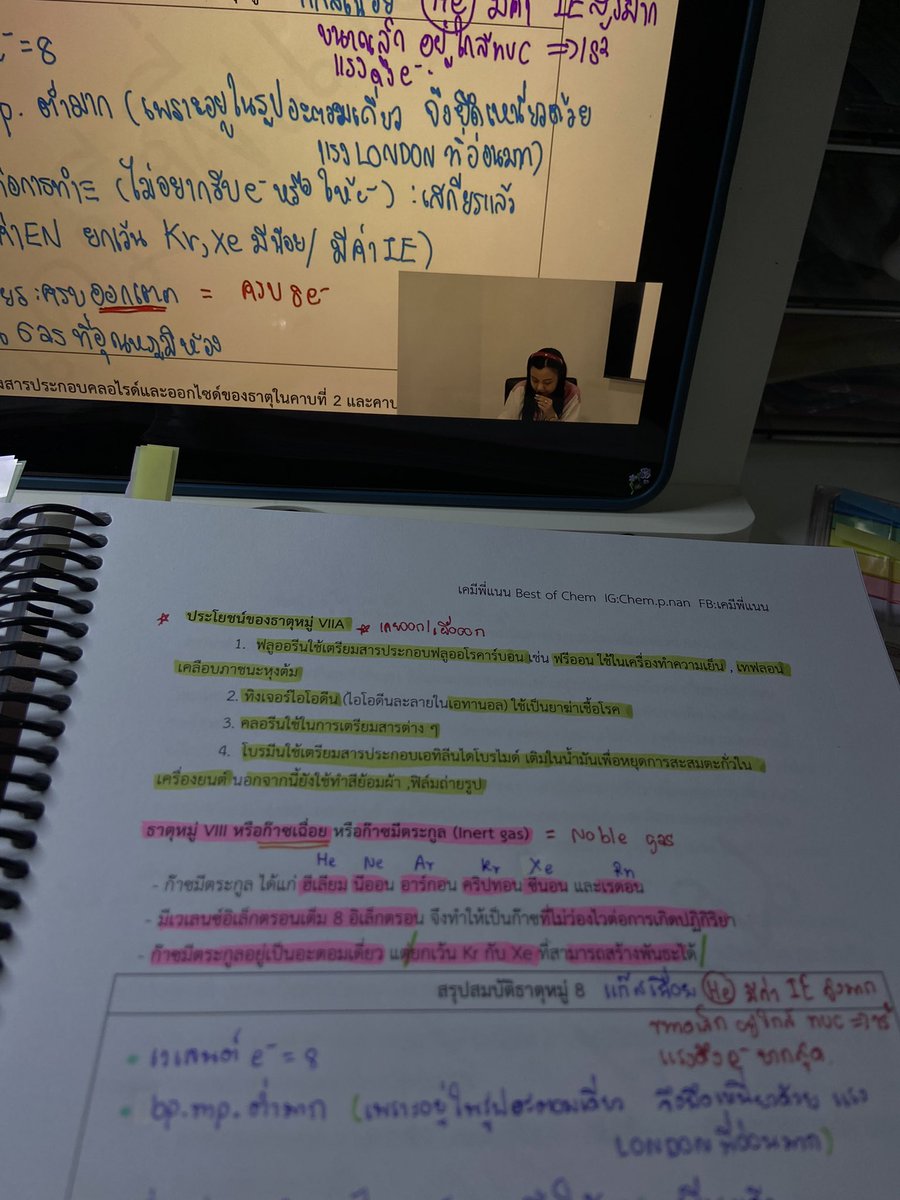 แก๊สเฉื่อย (He) มีค่า IE สูงมาก
ขนาดเล็ก อยู่ใกล้ nuc => ใช้
แรงดึง e⁻
e⁻ = 8
p. ต่ำมาก (เพราะอยู่ในรูปอะตอมเดี่ยว จึงยึดเหนี่ยวด้วย
แรง LONDON ที่อ่อนมาก)
ต่อการทำ (ไม่อยากรับ e⁻ หรือ ให้ e⁻) : เสถียรแล้ว
ค่า EN ยกเว้น Kr, Xe มีน้อย / มีค่า IE)
ครบออกเตต = ครบ 8e⁻
Gas ที่อุณหภูมิห้อง
สารประกอบคลอไรด์และออกไซด์ของธาตุในคาบที่ 2 และคาบ
เคมีพี่แนน Best of Chem IG:Chem.p.nan FB:เคมีพี่แนน
ประโยชน์ของธาตุหมู่ VIIA
1. ฟลูออรีนใช้เตรียมสารประกอบฟลูออโรคาร์บอน เช่น ฟรีออน ใช้ในเครื่องทำความเย็น , เทฟลอน
เคลือบภาชนะหุงต้ม
2. ทิงเจอร์ไอโอดีน (ไอโอดีนละลายในเอทานอล) ใช้เป็นยาฆ่าเชื้อโรค
3. คลอรีนใช้ในการเตรียมสารต่าง ๆ
4. โบรมีนใช้เตรียมสารประกอบเอทิลีนไดโบรไมด์ เติมในน้ำมันเพื่อหยุดการสะสมตะกั่วใน
เครื่องยนต์ นอกจากนี้ยังใช้ทำสีย้อมผ้า ,ฟิล์มถ่ายรูป
ธาตุหมู่ VIII หรือก๊าซเฉื่อย หรือก๊าซมีตระกูล (Inert gas) = Noble gas
He Ne Ar Kr Xe Rn
- ก๊าซมีตระกูล ได้แก่ ฮีเลียม นีออน อาร์กอน คริปทอน ซีนอน และเรดอน
- มีเวเลนซ์อิเล็กตรอนเต็ม 8 อิเล็กตรอน จึงทำให้เป็นก๊าซที่ไม่ว่องไวต่อการเกิดปฏิกิริยา
- ก๊าซมีตระกูลอยู่เป็นอะตอมเดี่ยว แต่ยกเว้น Kr กับ Xe ที่สามารถสร้างพันธะได้
สรุปสมบัติธาตุหมู่ 8 แก๊สเฉื่อย (He) มีค่า IE สูงมาก
ขนาดเล็ก อยู่ใกล้ nuc => ใช้
แรงดึง e⁻ มากสุด
เวเลนต์ e⁻ = 8
bp. mp. ต่ำมาก (เพราะอยู่ในรูปอะตอมเดี่ยว จึงยึดเหนี่ยวด้วย แรง
LONDON ที่อ่อนมาก)